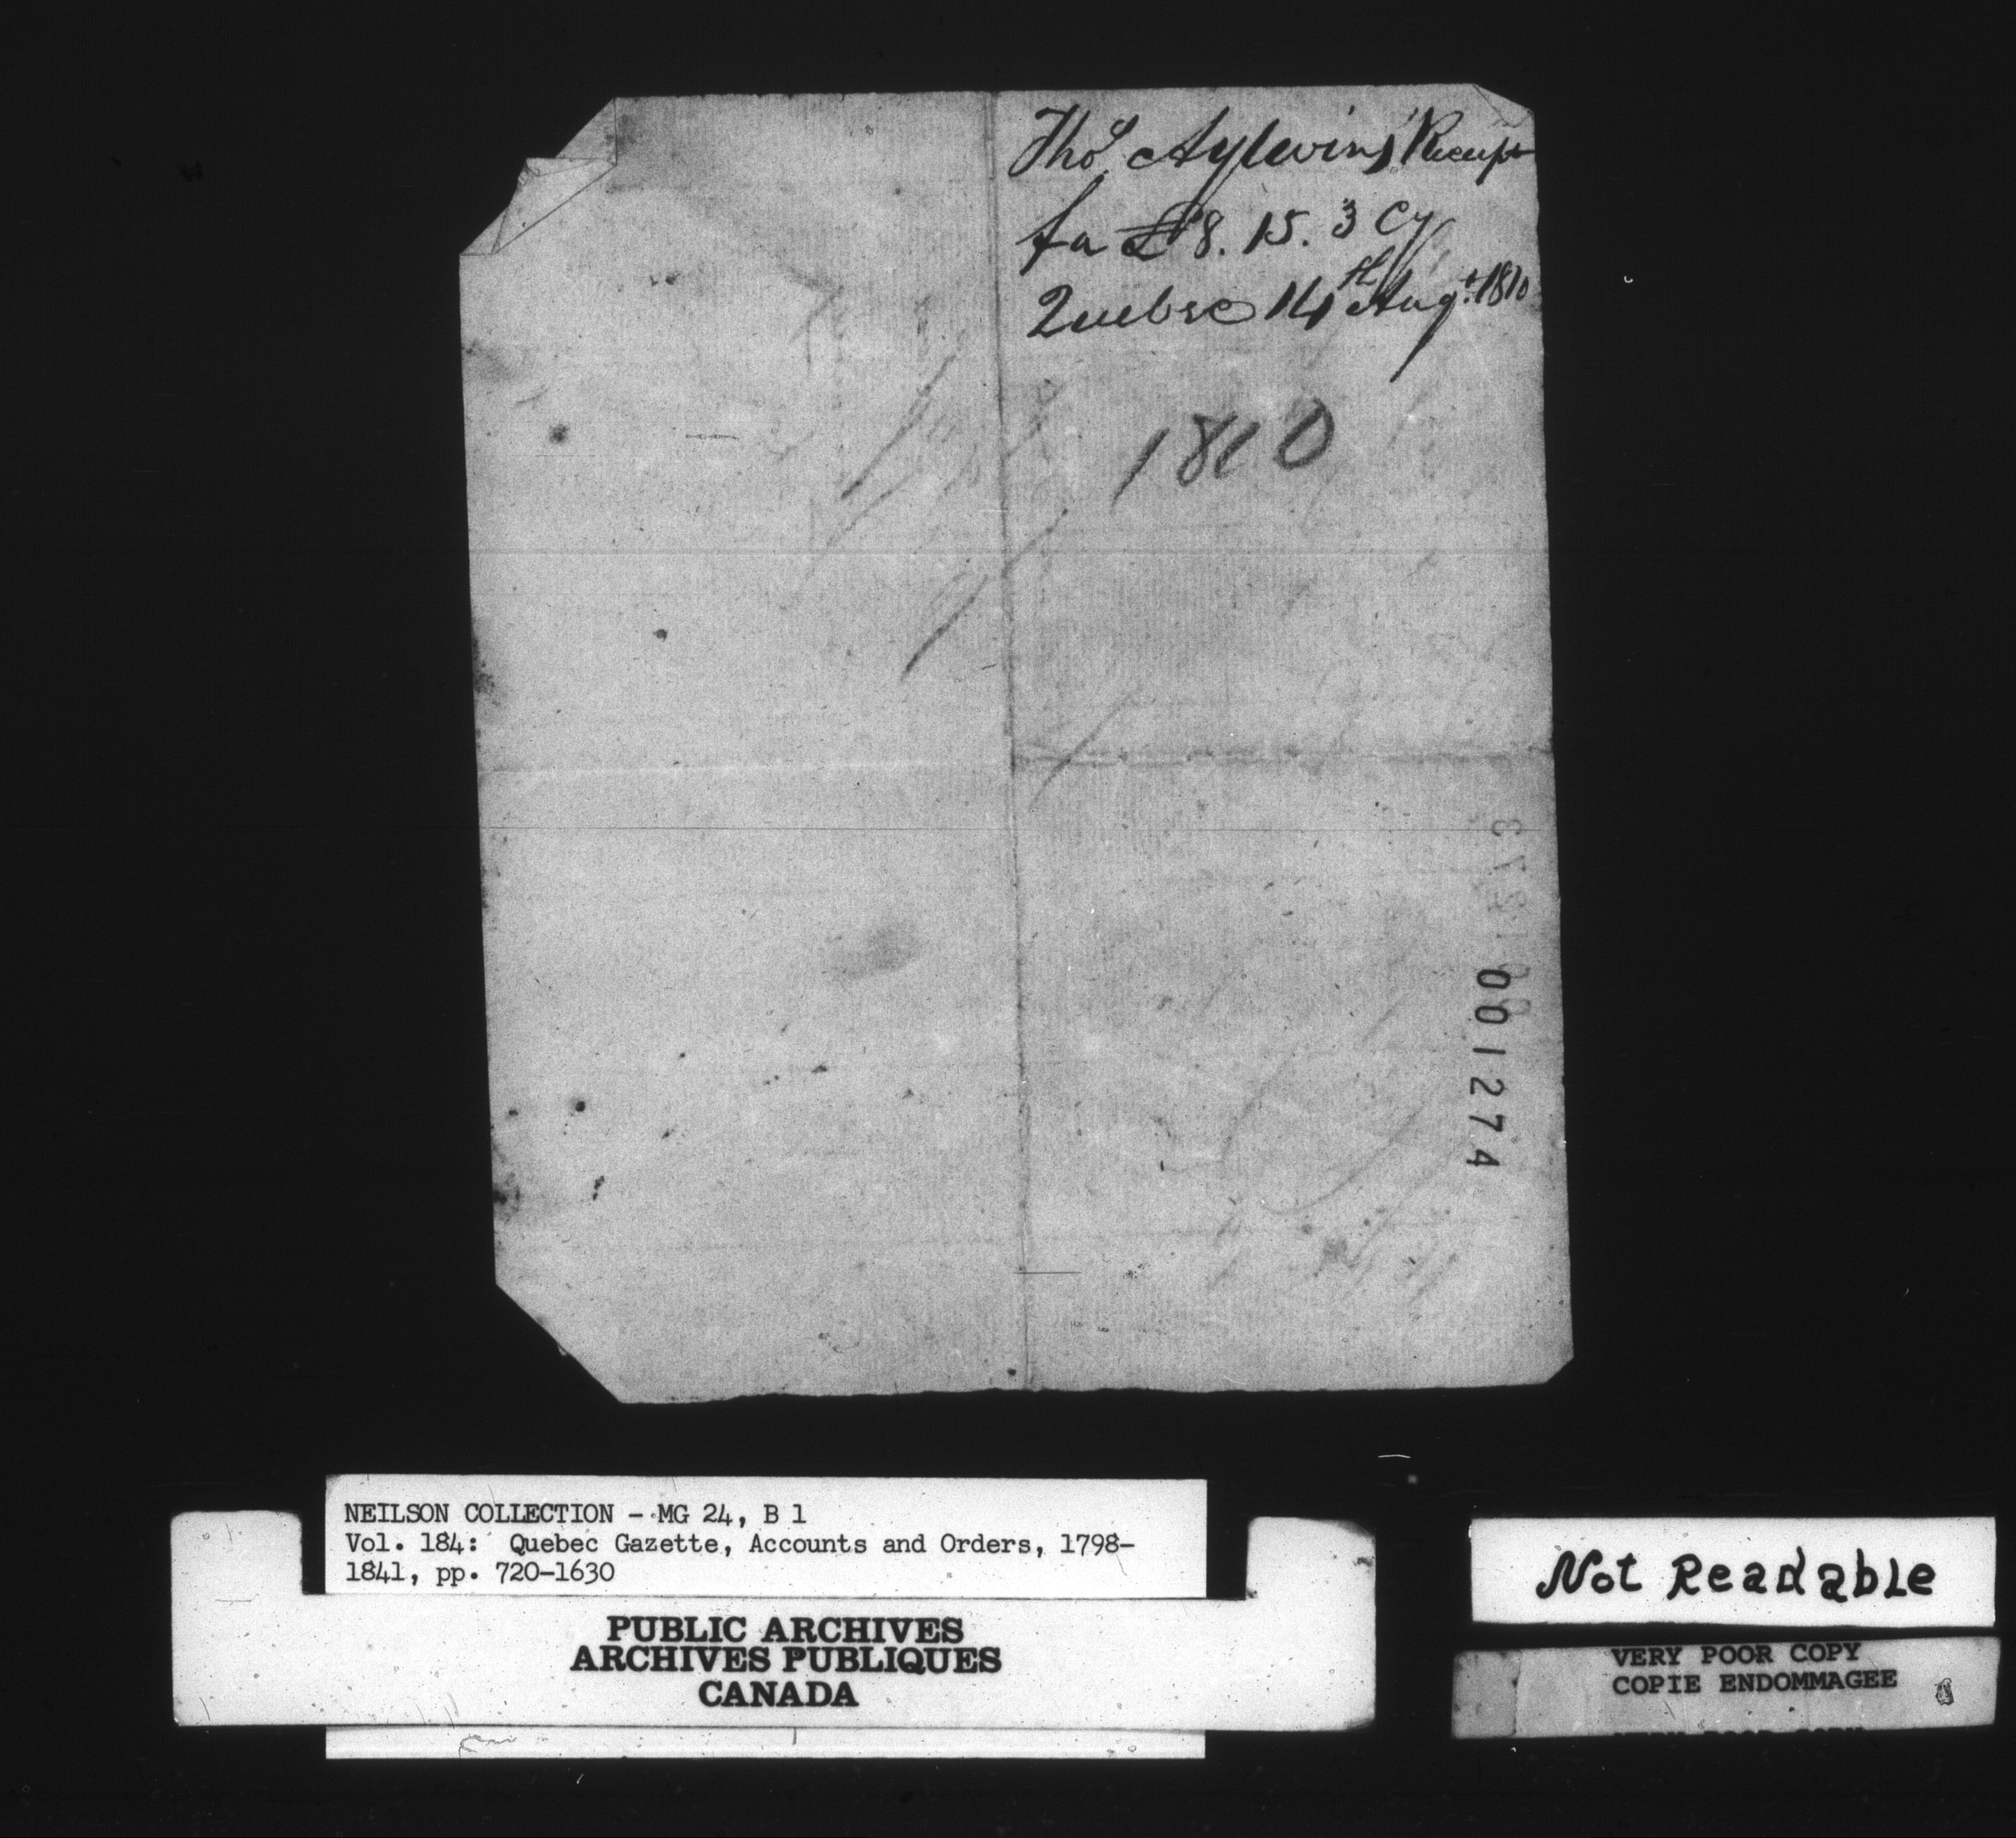 Thos. Aylwins Receipt
for £8. 15. 3 Cy
Quebec 14th Augt. 1810
1810
001274
NEILSON COLLECTION - MG 24, B 1
Vol. 184: Quebec Gazette, Accounts and Orders, 1798-
1841, pp. 720-1630
PUBLIC ARCHIVES
ARCHIVES PUBLIQUES
CANADA
Not Readable
VERY POOR COPY
COPIE ENDOMMAGEE